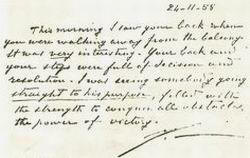 24-11-58
This morning I saw your back when
you were walking away from the balcony.
It was very interesting. Your back and
your steps were full of decision and
resolution. I was seeing somebody going
straight to his purpose, filled with
the strength to conquer all obstacles,
the power of victory.